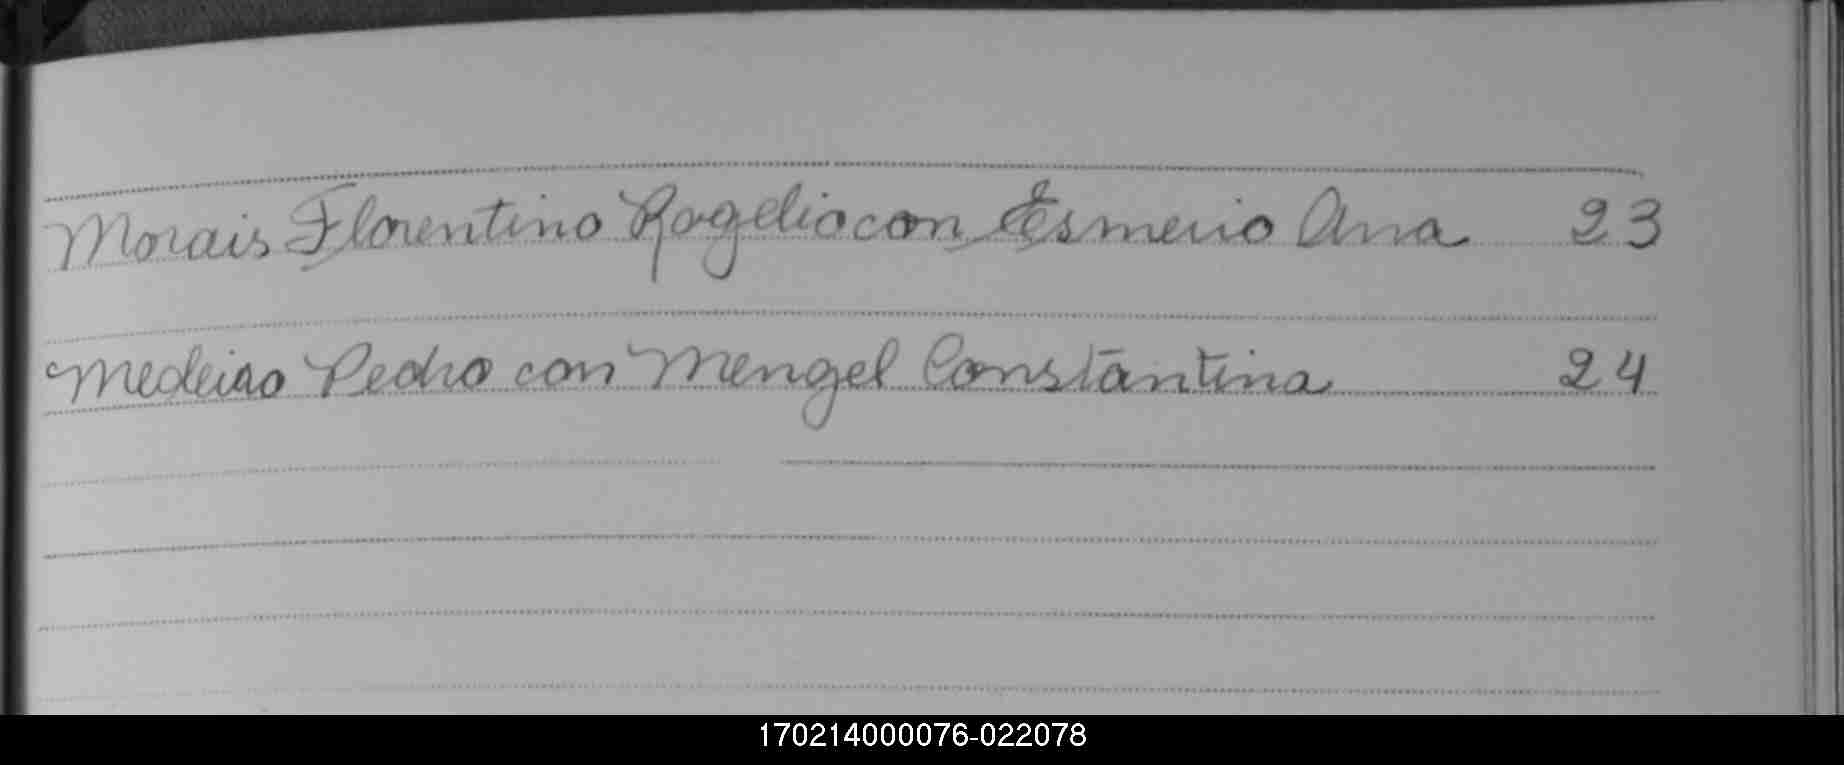 Morais Florentino Rogelio con Esmerio Ana 23
Medeiro Pedro con Mengel Constantina 24
170214000076-022078